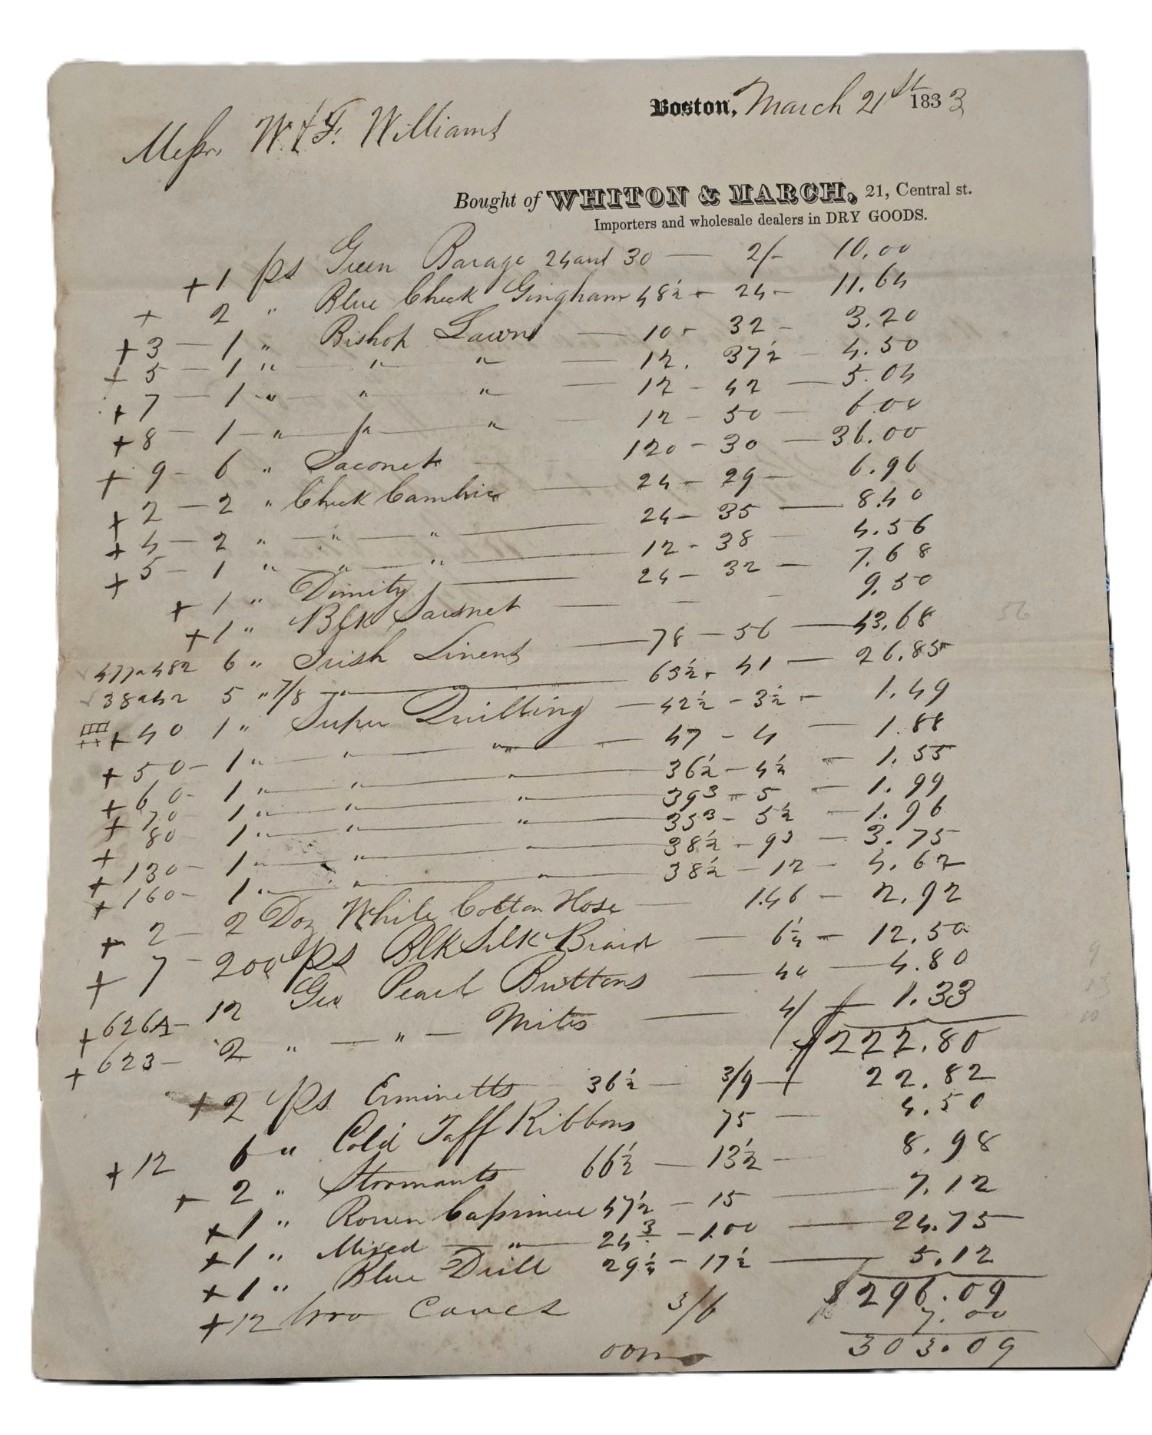 Boston, March 21st 1833
Messrs. W. & F. Williams
Bought of WHITON & MARCH, 21, Central st.
Importers and wholesale dealers in DRY GOODS.
+ 1 ps Green Barage 24 and 30 — 2/- 10.00
+ 2 " Blue Check Gingham 48½ - 24 - 11.64
+ 3 - 1 " Bishop Lawns — 10 - 32 - 3.20
+ 5 - 1 " " " — 12. 37½ - 4.50
+ 7 - 1 " " " — 12 - 42 — 5.04
+ 8 - 1 - " " 12 - 50 - 6.00
+ 9 - 6 " Jaconet 120 - 30 — 36.00
+ 2 - 2 " Check Cambric — 24 - 29 — 6.96
+ 4 - 2 " " — " — 24 - 35 — 8.40
+ 5 - 1 " " " — 12 - 38 4.56
+ 1 " Dimity — 24 - 32 - 7.68
+ 1 " Blk Sarsnet — - - 9.50
477a482 6 " Irish Linens — 78 - 56 — 43.68
38a42 5 " 7/8 " — 65½ - 41 — 26.85
+ 40 1 " Super Quilting — 42½ - 3½ - 1.49
+ 50 - 1 " " " — 47 - 4 1.88
+ 60 - 1 " " " — 36½ - 4¼ - 1.55
+ 70 - 1 " " " — 39³ - 5 - 1.99
+ 80 1 " " " — 35³ - 5½ - 1.96
+ 130 - 1 " " " — 38½ - 9³ - 3.75
+ 160 - 1 " " " — 38½ - 12 - 4.62
+ 2 - 2 Doz White Cotton Hose — 1.46 - 2.92
+ 7 - 200 ps Blk Silk Braid — 6¼ - 12.50
+ 626A - 12 Gro Pearl Buttons — 40 — 4.80
+ 623 - 2 " — " — Mitts — 4/ — 1.33
$222.80
+ 2 ps Erminetts 36½ — 3/9 — 22.82
+ 12 6 " Cold Taff Ribbons 75 — 4.50
+ 2 " Stormants 66½ — 13½ — 8.98
+ 1 " Rouen Cassimere 47½ - 15 — 7.12
+ 1 " Mixed " 24¾ - 1.00 — 24.75
+ 1 " Blue Drill 29¼ - 17½ — 5.12
$296.09
+ 12 Canes 3/6 7.00
303.09